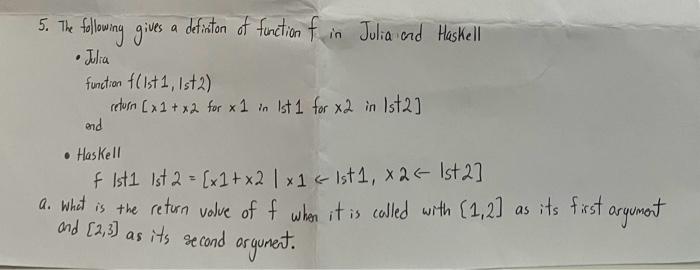 5. The following gives a definiton of function f in Julia and Haskell
• Julia
function f(lst1, lst2)
return [x1 + x2 for x1 in lst1 for x2 in lst2]
end
• Haskell
f lst1 lst2 = [x1+x2 | x1 ← lst1, x2 ← lst2]
a. What is the return value of f when it is called with [1,2] as its first argument
and [2,3] as its second argument.